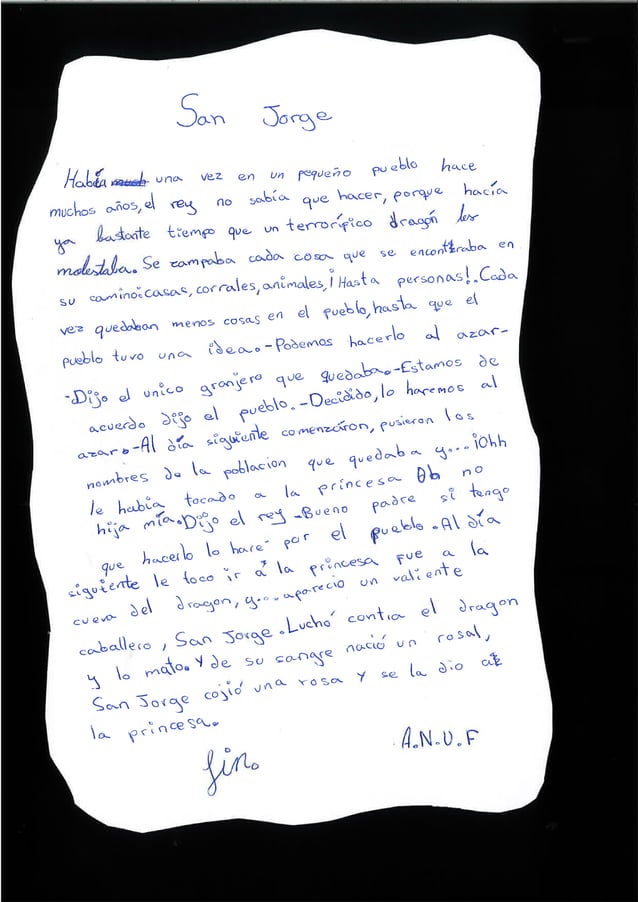 San Jorge
Había una vez en un pequeño pueblo hace
muchos años, el rey no sabía que hacer, porque hacía
ya bastante tiempo que un terrorífico dragón les
molestaba. Se zampaba cada cosa que se encontraba en
su camino: casas, corrales, animales, ¡Hasta personas!. Cada
vez quedaban menos cosas en el pueblo, hasta que el
pueblo tuvo una idea. -Podemos hacerlo al azar-
-Dijo el unico granjero que quedaba. -Estamos de
acuerdo dijo el pueblo. -Decidido, lo haremos al
azar. -Al día siguiente comenzaron, pusieron los
nombres de la poblacion que quedaba y... ¡Ohh
le había tocado a la princesa Oh no
hija mía. Dijo el rey -Bueno padre si tengo
que hacerlo lo haré por el pueblo. Al día
siguiente le toco ir a la princesa fue a la
cueva del dragon, y... aparecio un valiente
caballero, San Jorge. Luchó contra el dragon
y lo mato. Y de su sangre nació un rosal,
San Jorge cojió una rosa y se la dio a
la princesa.
fin.
A.N.U.F